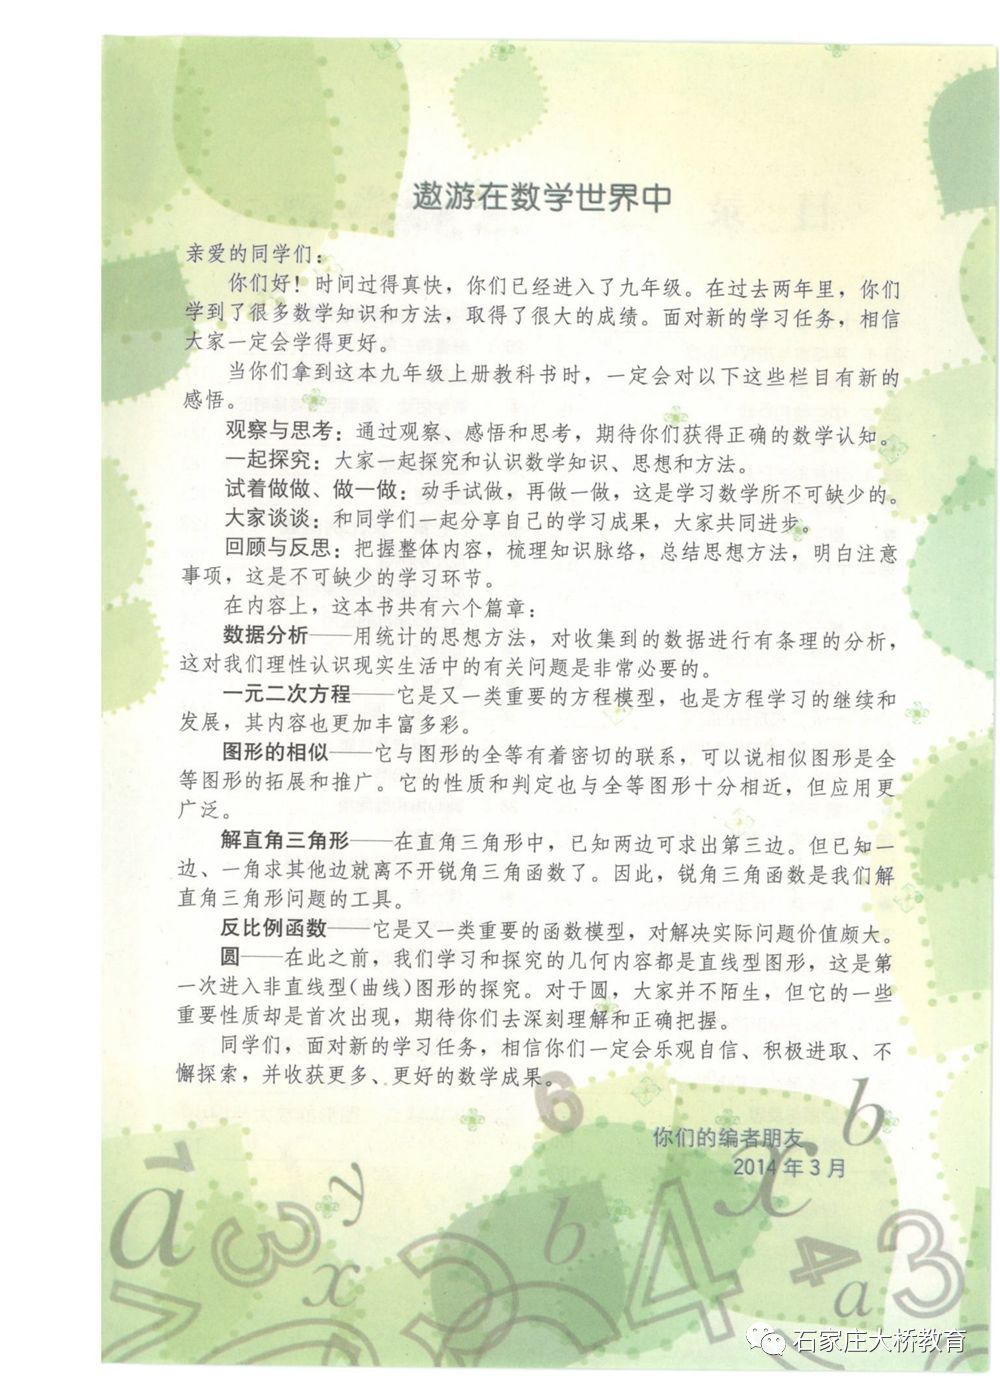 遨游在数学世界中
亲爱的同学们：
你们好！时间过得真快，你们已经进入了九年级。在过去两年里，你们
学到了很多数学知识和方法，取得了很大的成绩。面对新的学习任务，相信
大家一定会学得更好。
当你们拿到这本九年级上册教科书时，一定会对以下这些栏目有新的
感悟。
观察与思考：通过观察、感悟和思考，期待你们获得正确的数学认知。
一起探究：大家一起探究和认识数学知识、思想和方法。
试着做做、做一做：动手试做，再做一做，这是学习数学所不可缺少的。
大家谈谈：和同学们一起分享自己的学习成果，大家共同进步。
回顾与反思：把握整体内容，梳理知识脉络，总结思想方法，明白注意
事项，这是不可缺少的学习环节。
在内容上，这本书共有六个篇章：
数据分析——用统计的思想方法，对收集到的数据进行有条理的分析，
这对我们理性认识现实生活中的有关问题是非常必要的。
一元二次方程——它是又一类重要的方程模型，也是方程学习的继续和
发展，其内容也更加丰富多彩。
图形的相似——它与图形的全等有着密切的联系，可以说相似图形是全
等图形的拓展和推广。它的性质和判定也与全等图形十分相近，但应用更
广泛。
解直角三角形——在直角三角形中，已知两边可求出第三边。但已知一
边、一角求其他边就离不开锐角三角函数了。因此，锐角三角函数是我们解
直角三角形问题的工具。
反比例函数——它是又一类重要的函数模型，对解决实际问题价值颇大。
圆——在此之前，我们学习和探究的几何内容都是直线型图形，这是第
一次进入非直线型（曲线）图形的探究。对于圆，大家并不陌生，但它的一些
重要性质却是首次出现，期待你们去深刻理解和正确把握。
同学们，面对新的学习任务，相信你们一定会乐观自信、积极进取、不
懈探索，并收获更多、更好的数学成果。
你们的编者朋友
2014年3月
6
b
x
a
y
3
x
b
4
4
3
a
石家庄大桥教育